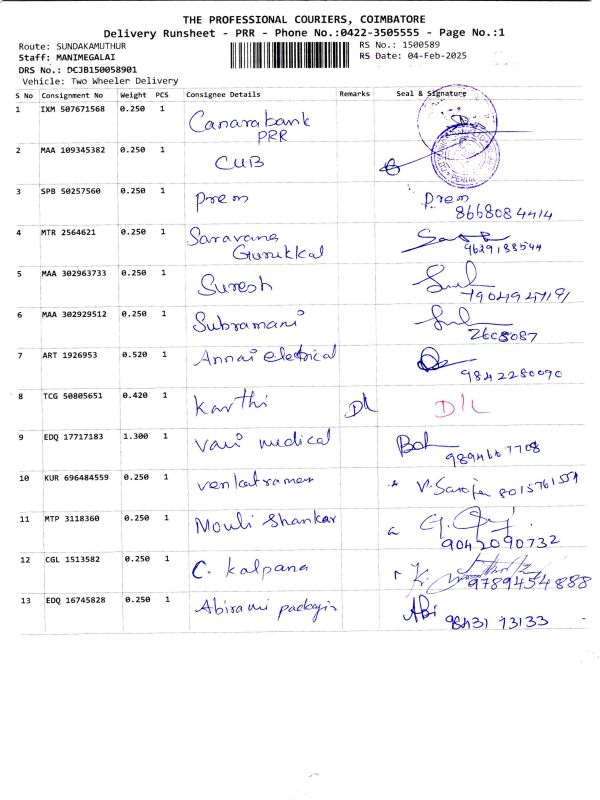 THE PROFESSIONAL COURIERS, COIMBATORE
Delivery Runsheet - PRR - Phone No.:0422-3505555 - Page No.:1
Route: SUNDAKAMUTHUR RS No.: 1500589
Staff: MANIMEGALAI RS Date: 04-Feb-2025
DRS No.: DCJB150058901
Vehicle: Two Wheeler Delivery
S No Consignment No Weight PCS Consignee Details Remarks Seal & Signature
1 IXM 507671568 0.250 1 Canarabank
PRR
2 MAA 109345382 0.250 1 CUB
3 SPB 50257560 0.250 1 Prem Prem
8668084414
4 MTR 2564621 0.250 1 Saravana
Gurukkal 9629188544
5 MAA 302963733 0.250 1 Suresh
6 MAA 302929512 0.250 1 Subramani
2608087
7 ART 1926953 0.520 1 Annai eletrical
9842280090
8 TCG 50805651 0.420 1 Karthi DL DIL
9 EDQ 17717183 1.300 1 Vani medical
10 KUR 696484559 0.250 1 Venkatraman V. Saroja
11 MTP 3118360 0.250 1 Mouli Shankar
9042090732
12 CGL 1513582 0.250 1 C. Kalpana
9789454888
13 EDQ 16745828 0.250 1 Abirami Abi
98431 73133